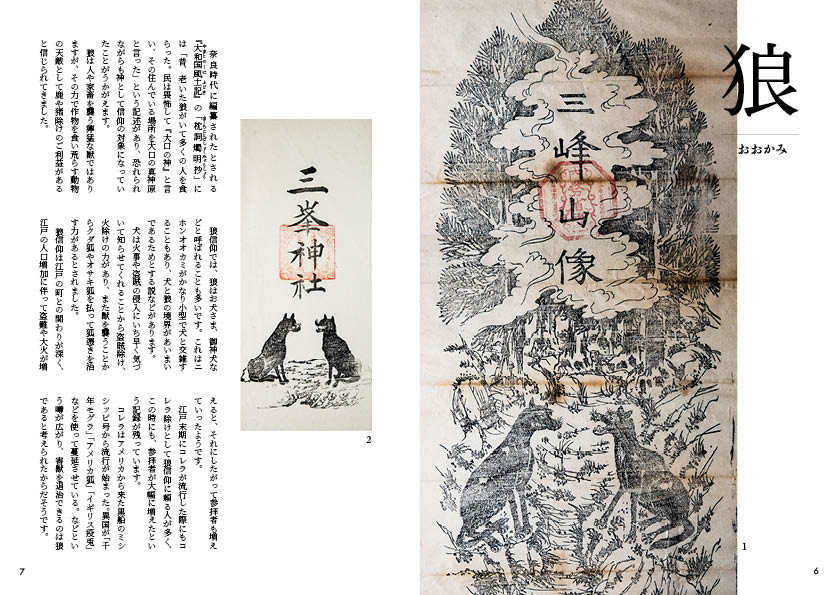 狼
おおかみ
三峰山像
1
6
三峯神社
2
奈良時代に編纂されたとされる
『大和国風土記』の「枕詞燭明抄」に
は「昔、老いた狼がいて多くの人を食
らった。民は畏怖して『大口の神』と言
い、その住んでいる場所を大口の真神原
と言った」という記述があり、恐れられ
ながらも神として信仰の対象になってい
たことがうかがえます。
狼は人や家畜を襲う獰猛な獣ではあり
ますが、その力で作物を食い荒らす動物
の天敵として鹿や猪除けのご利益がある
と信じられてきました。
狼信仰では、狼はお犬さま、御神犬な
どと呼ばれることも多いです。これはニ
ホンオオカミがかなり小型で犬と交雑す
ることもあり、犬と狼の境界があいまい
であるためとする説などがあります。
犬は火事や盗賊の侵入にいち早く気づ
いて知らせてくれることから盗賊除け、
火除けの力があり、また獣を襲うことか
らクダ狐やオサキ狐を払って狐憑きを治
す力があるとされました。
狼信仰は江戸の町との関わりが深く、
江戸の人口増加に伴って盗難や大火が増
えると、それにしたがって参拝者も増え
ていったようです。
江戸末期にコレラが流行した際にもコ
レラ除けとして狼信仰に頼る人が多く、
この時にも、参拝者が大幅に増えたとい
う記録が残っています。
コレラはアメリカから来た黒船のミシ
シッピ号から流行が始まった。異国が「千
年モグラ」「アメリカ狐」「イギリス疫兎」
などを使って蔓延させている。などとい
う噂が広がり、害獣を退治できるのは狼
であると考えられたからだそうです。
7